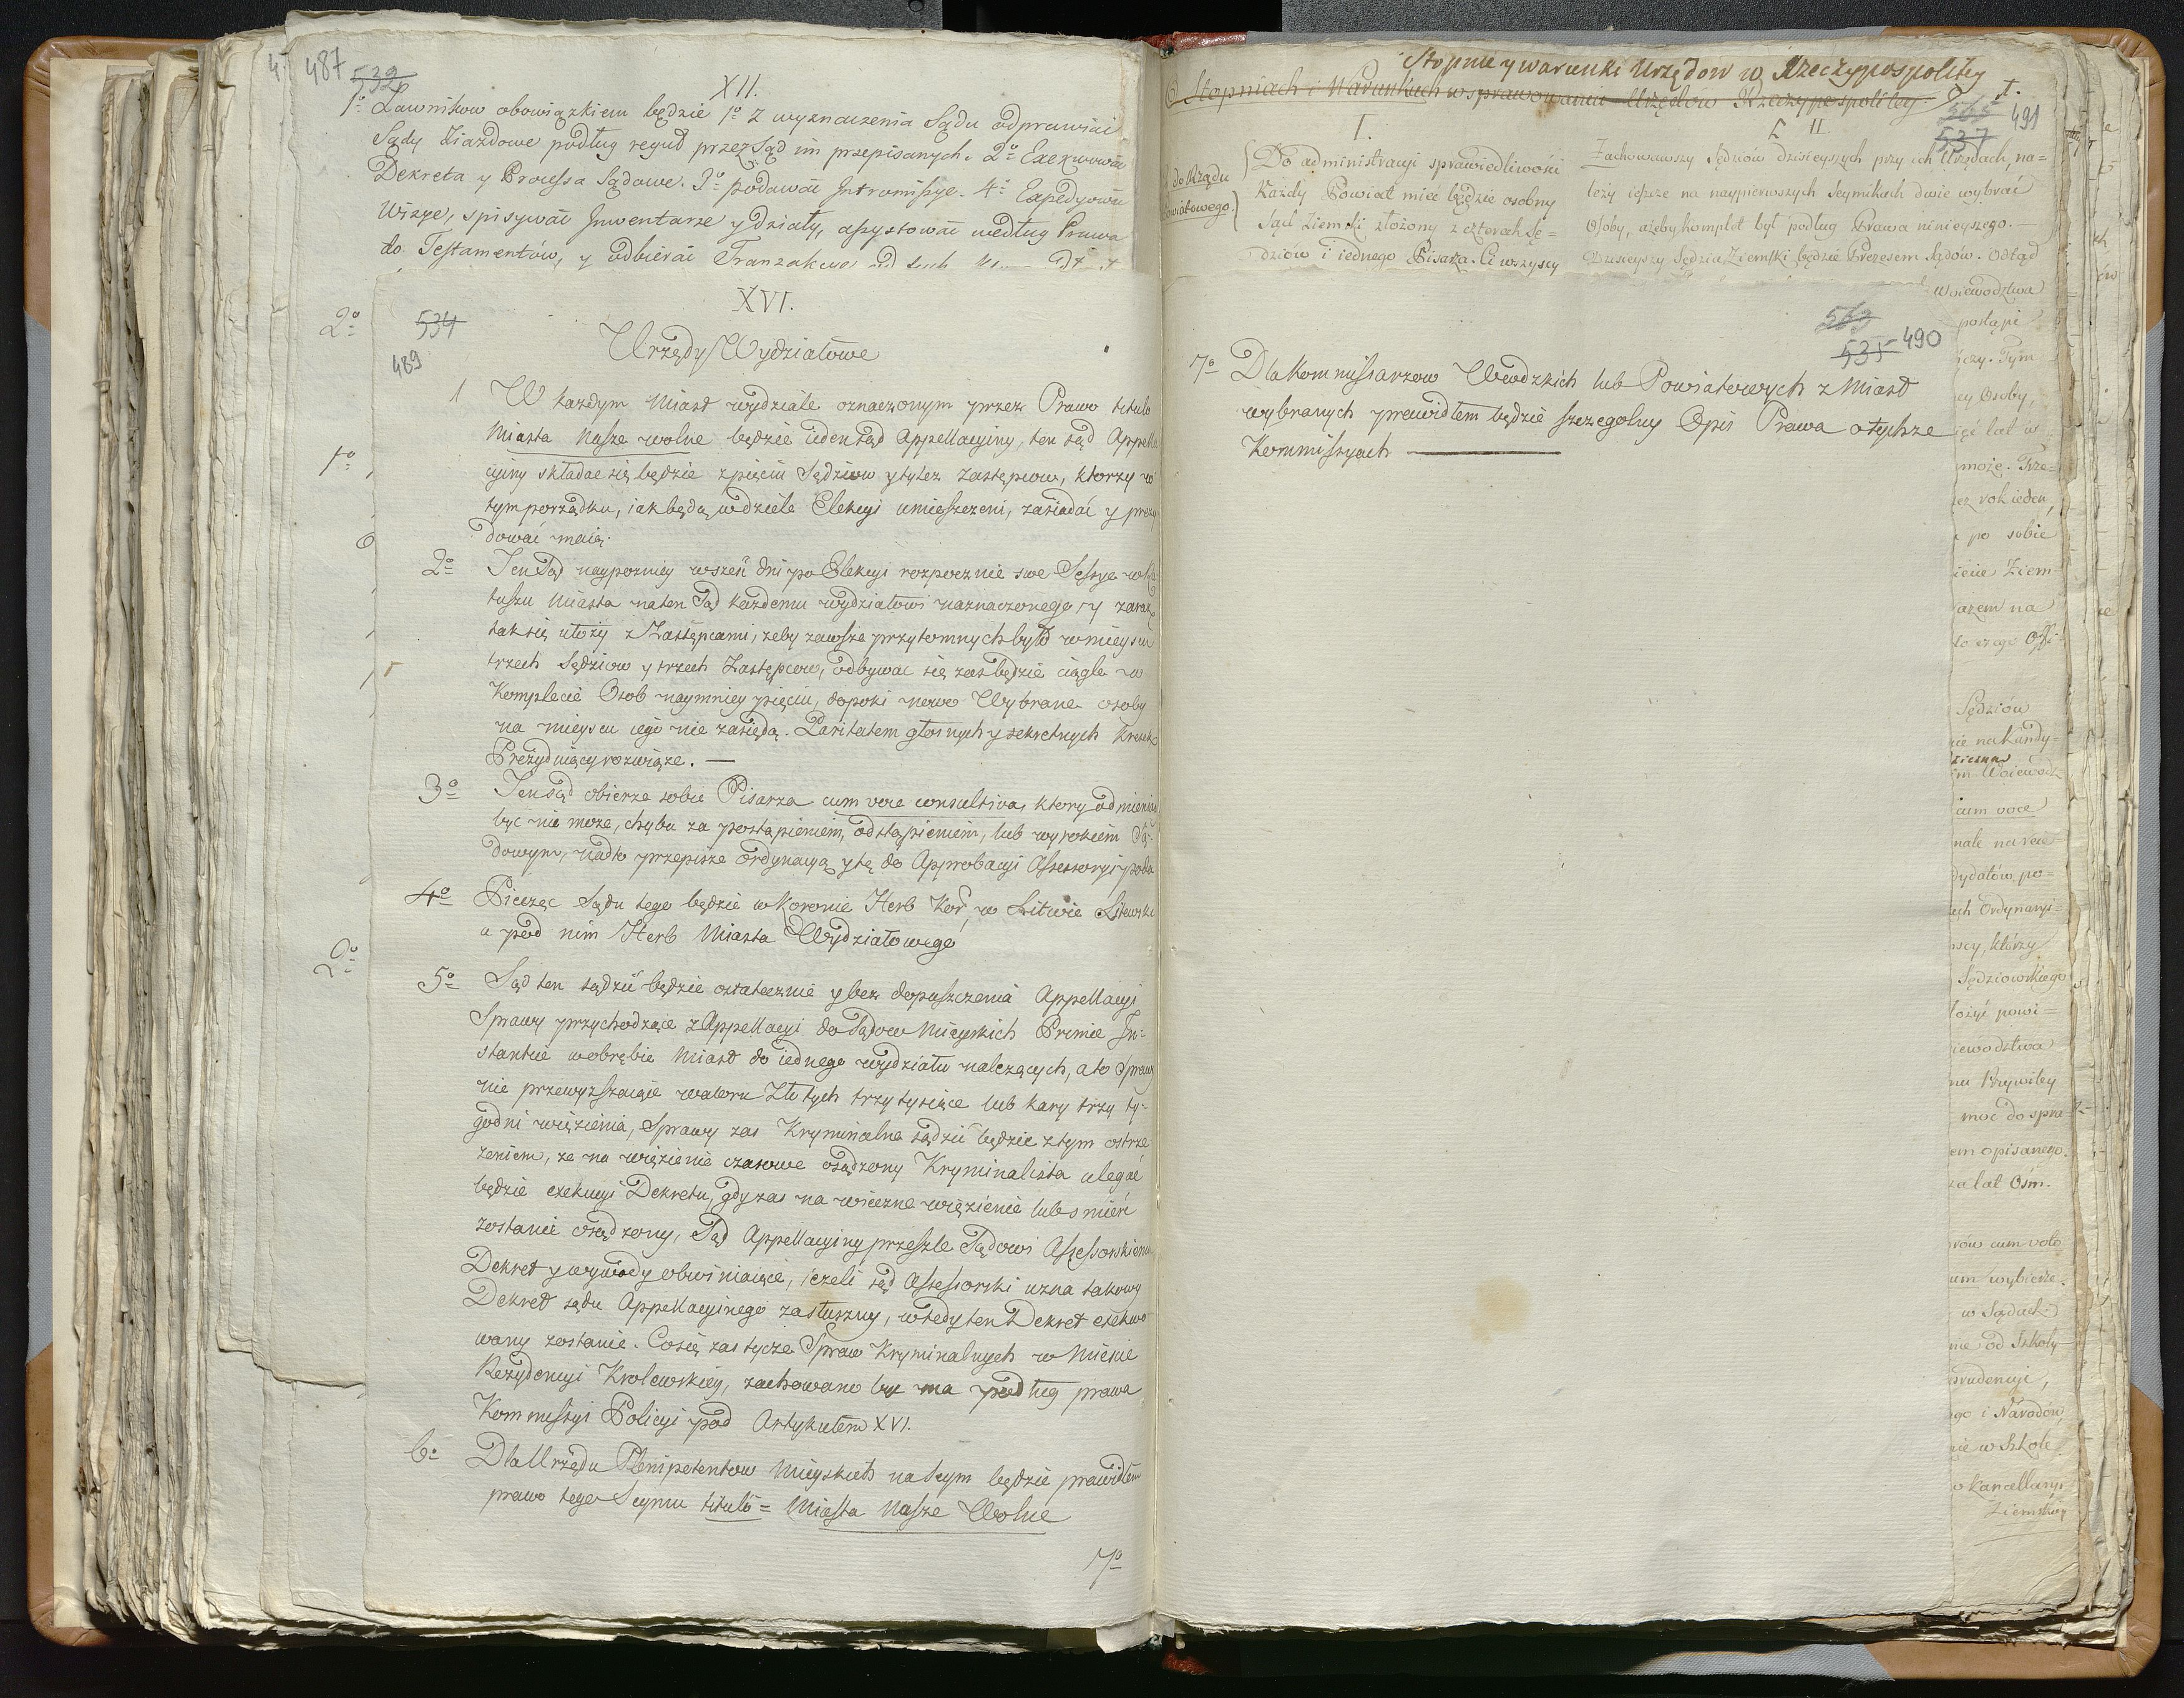 487
532
XII.
1º Ławnikow obowiązkiem będzie 1º z wyznaczenia Sądu odprawiać
Sądy Ziazdowe podług reguł przez Sąd im przepisanych. 2º Exekwować
Dekreta y Processa Sądowe. 3º podawać Intromissye. 4º Expedyować
Wizye, spisywać Inwentarze y działy, assystować według Prawa
do Testamentów, y odbierać Tranzakcye
2º
XVI.
534
489
Urzędy Wydziałowe
1 W kazdym Miast wydziale oznaczonym przez Prawo titulo
Miasta Nasze wolne będzie ieden sąd Appellacyiny, ten sąd Appella
cyiny składac się będzie z pięciu Sędziow y tylez zastępcow, ktorzy w
tym porządku, iak będą w dziele Elekcyi umieszczeni, zasiadać y prezy
dować maią.
2º Ten Sąd naypozniey w sześć dni po Elekcyi rozpocznie swe Sessye w Ra
tuszu Miasta na ten Sąd kazdemu wydziałowi naznaczonego, y zaraz
tak się ułozy z Zastępcami, zeby zawsze przytomnych było w mieyscu
trzech Sędziow y trzech Zastępcow, odbywac się zas będzie ciągle w
Komplecie Osob naymniey pięciu, dopoki nowo Wybrane osoby
na mieyscu iego nie zasiędą. Paritatem głosnych y sekretnych kresek
Prezyduiący rozwiąze. —
3º Ten sąd obierze sobie Pisarza cum voce consultiva, ktory odmienion
być nie moze, chyba za postąpieniem, odstąpieniem, lub wyrokiem Są-
dowym, nadto przepisze ordynacyą y tę do Approbacyi Assessoryi poda
4º Pieczęc Sądu tego będzie w Koronie Herb Kor, w Litwie Litewski
a pod nim Herb Miasta Wydziałowego
5º Sąd ten sądzić będzie ostatecznie y bez dopuszczenia Appellacyi
Sprawy przychodzące z Appellacyi do Sądow Mieyskich Primæ In-
stantiæ w obrębie Miast do iednego wydziału nalezących, a to Sprawy
nie przewyzszaiące waloru Złotych trzy tysiące lub kary trzy ty-
godni więzienia, Sprawy zas Kryminalne sądzić będzie z tym ostrze
zeniem, ze na więzienie czasowe osądzony Kryminalista ulegać
będzie exekucyi Dekretu, gdy zas na wieczne więzienie lub smierć
zostanie osądzony, Sąd Appellacyiny przeszle Sądowi Assessorskiemu
Dekret y wywody obwiniaiące, iezeli sąd Assessorski uzna takowy
Dekret sądu Appellacyinego za słuszny, wtedy ten Dekret exekwo
wany zostanie. Co się zas tycze Spraw Kryminalnych w Miescie
Rezydencyi Krolewskiey, zachowano byc ma podług prawa
Kommissyi Policyi pod Artykułem XVI.
6º Dla Urzędu Plenipotentow Mieyskich na Seym będzie prawidłem
prawo tego Seymu titulo = Miasta Nasze Wolne
7º
Stopnie y warunki Urzędow w Rzeczypospolitey
O Stopniach i Warunkach w sprawowaniu Urzędow Rzeczypospolitey.
565
537
491
I.
Do administracyi sprawiedliwości
Każdy Powiat mieć będzie osobny
Sąd Ziemski złożony z czterech Sę=
dziów i iednego Pisarza. Ci wszyscy
II.
Zachowawszy Sędziów dzisieyszych przy ich Urzędach, na=
leży ieszcze na naypierwszych Seymikach dwie wybrać
Osoby, ażeby komplet był podług Prawa ninieyszego. —
Dzisieyszy Sędzia Ziemski będzie Prezesem Sądów. Odtąd
Woiewodztwa
563
535
490
7º Dla Kommissarzow Wwdzkich lub Powiatowych z Miast
wybranych prawidłem będzie szczegolny Opis Prawa o tychze
Kommissyach —
może. Trze=
rok ieden,
po sobie
Ziem
na
Sędziów
cum voce
Ordynaryi=
którzy
Sędziowskiego
powi=
na Przywiley
moc do spra
opisanego.
lat Ośm.
cum voto
wybierze.
w Sądach
od Szkoły
i Narodów,
w Szkole
Kancellaryi
Ziemskiey